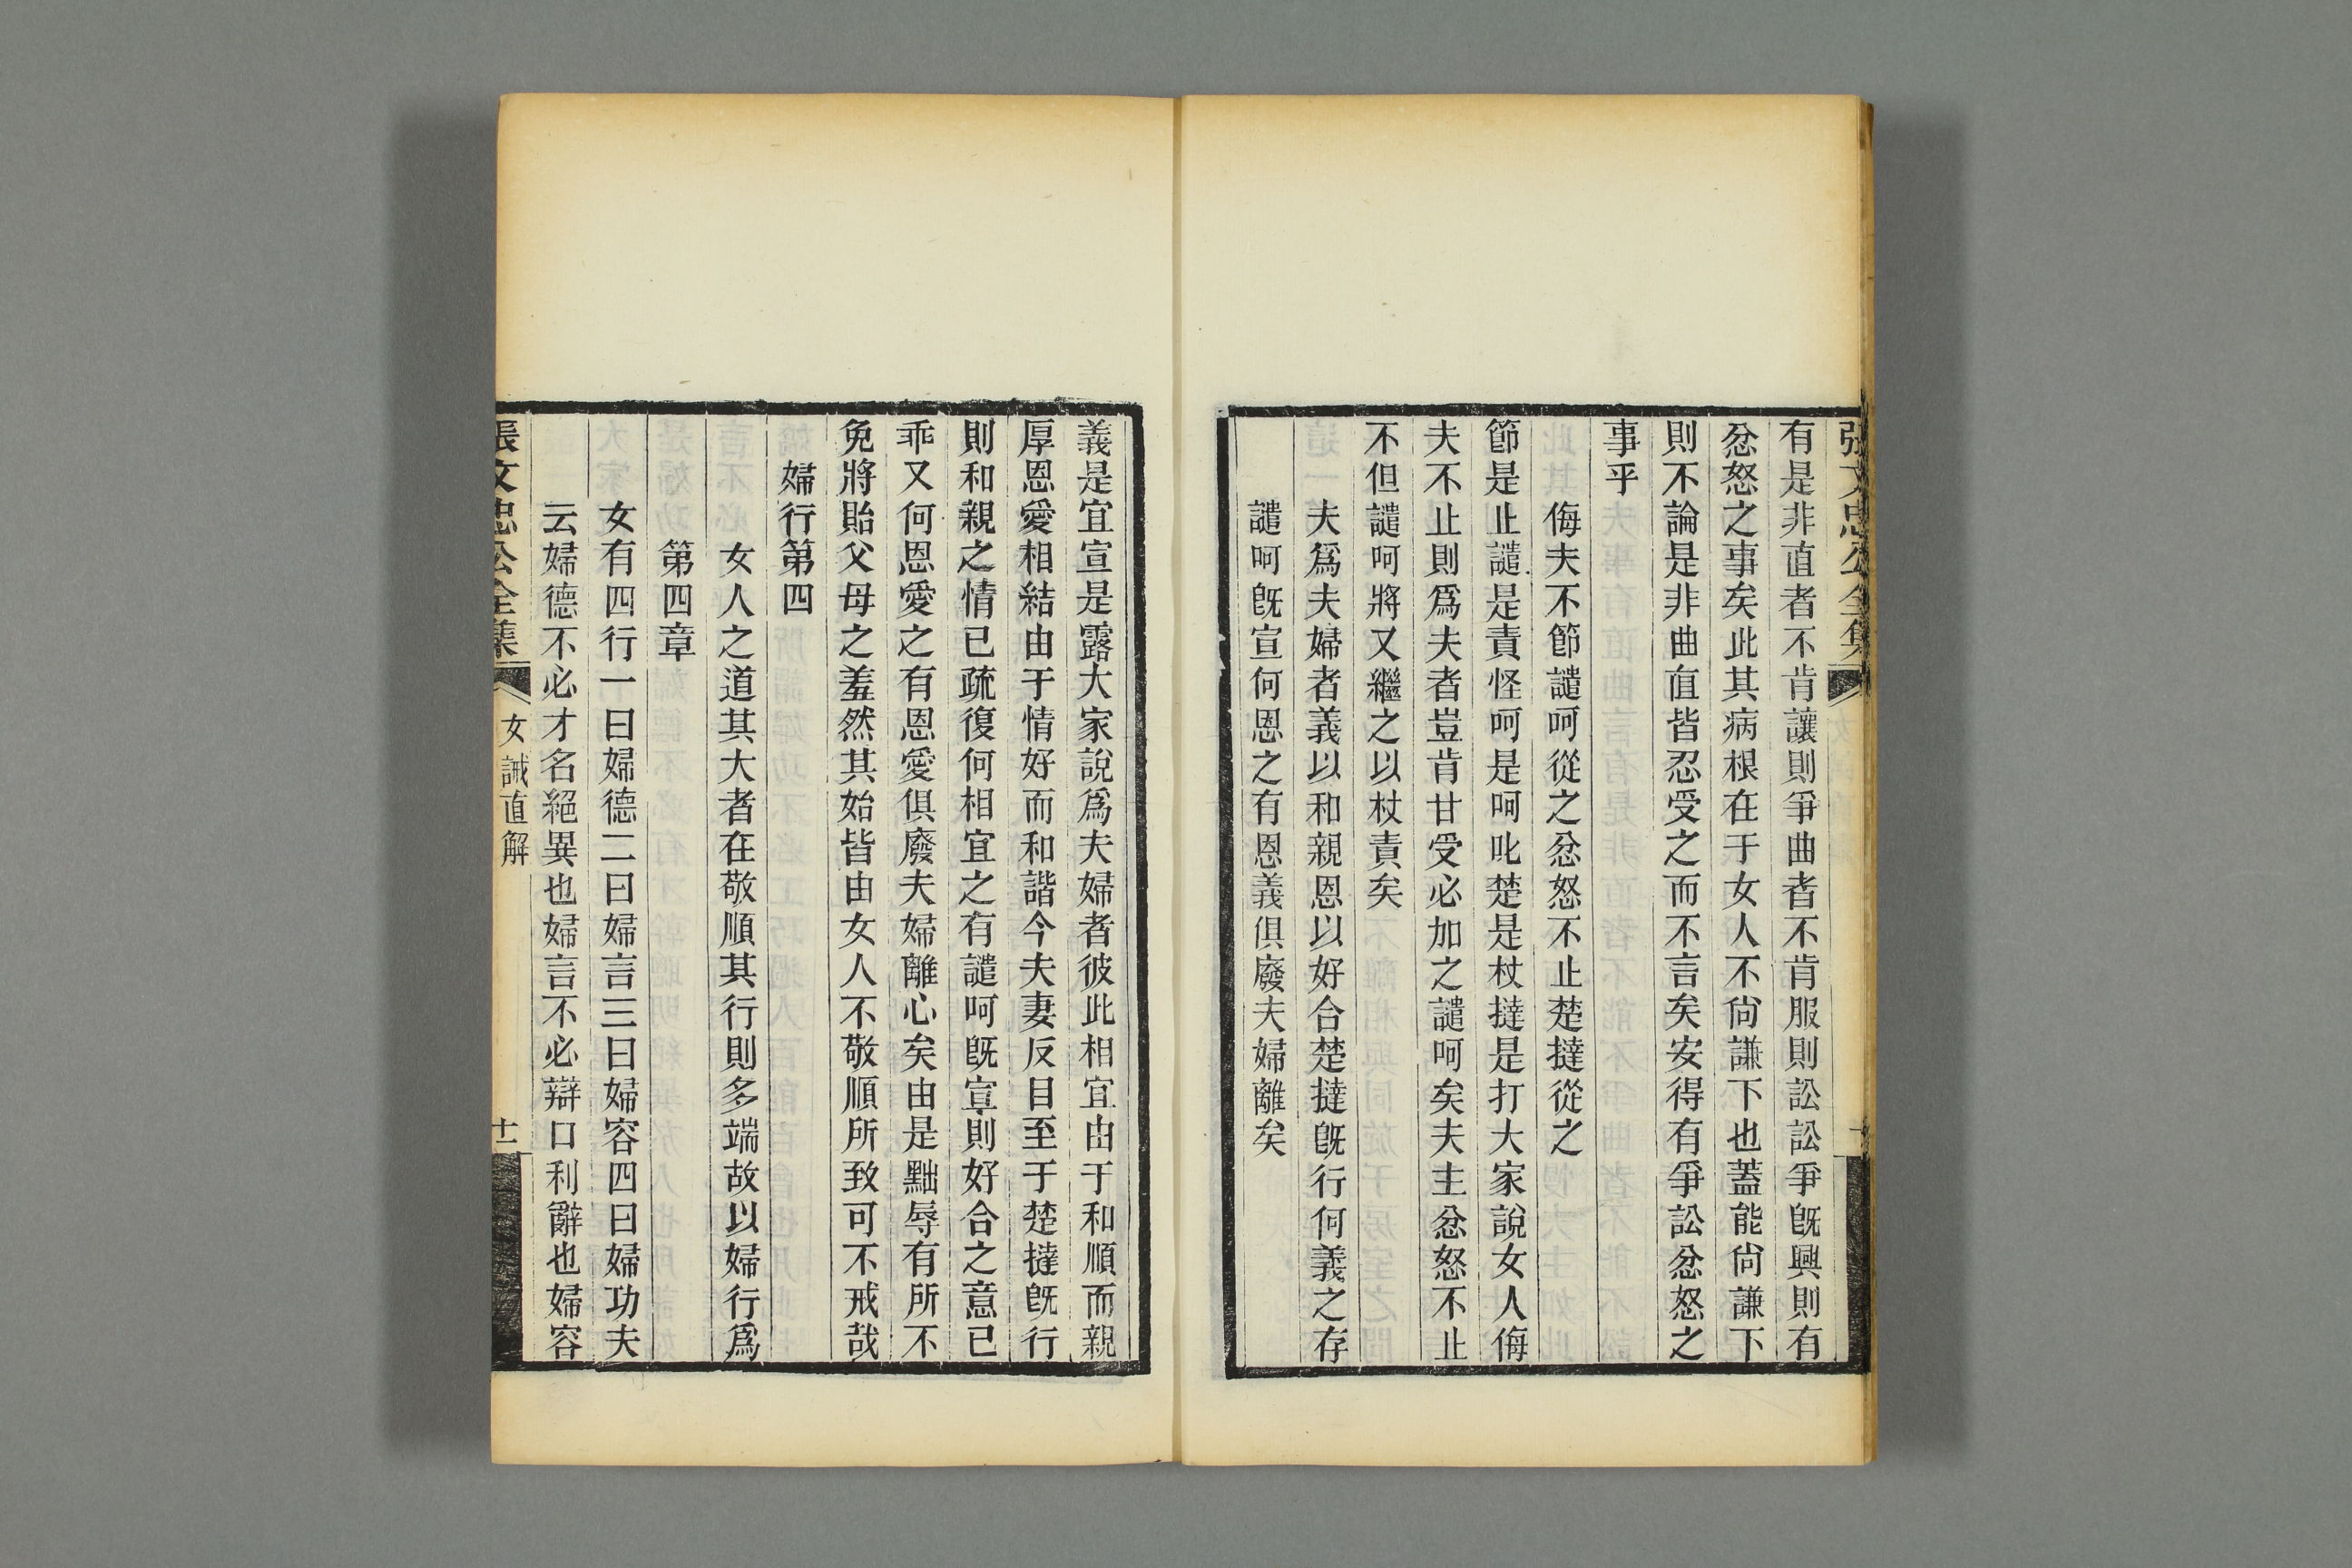 張文忠公全集
有是非直者不肯讓則爭曲者不肯服則訟訟爭旣興則有
忿怒之事矣此其病根在于女人不尙謙下也蓋能尙謙下
則不論是非曲直皆忍受之而不言矣安得有爭訟忿怒之
事乎
侮夫不節譴呵從之忿怒不止楚撻從之
節是止譴是責怪呵是呵叱楚是杖撻是打大家說女人侮
夫不止則爲夫者豈肯甘受必加之譴呵矣夫主忿怒不止
不但譴呵將又繼之以杖責矣
夫爲夫婦者義以和親恩以好合楚撻旣行何義之存
譴呵旣宣何恩之有恩義俱廢夫婦離矣
義是宜宣是露大家說爲夫婦者彼此相宜由于和順而親
厚恩愛相結由于情好而和諧今夫妻反目至于楚撻旣行
則和親之情已疏復何相宜之有譴呵旣宣則好合之意已
乖又何恩愛之有恩愛俱廢夫婦離心矣由是黜辱有所不
免將貽父母之羞然其始皆由女人不敬順所致可不戒哉
婦行第四
女人之道其大者在敬順其行則多端故以婦行爲
第四章
女有四行一曰婦德二曰婦言三曰婦容四曰婦功夫
云婦德不必才名絕異也婦言不必辯口利辭也婦容
張文忠公全集
女誡直解
十一